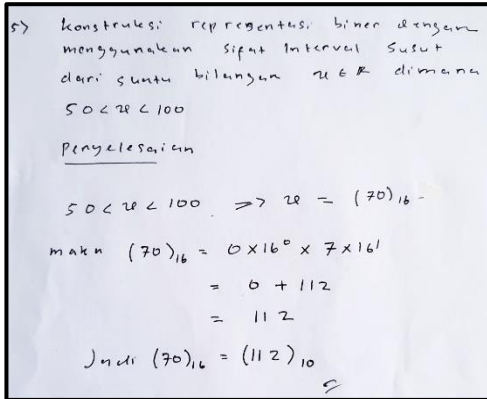 5) Konstruksi representasi biner dengan
menggunakan sifat Interval Susut
dari suatu bilangan x ∈ R dimana
50 < x < 100
Penyelesaian
50 < x < 100 => x = (70)₁₆
maka (70)₁₆ = 0 × 16⁰ × 7 × 16¹
= 0 + 112
= 112
Jadi (70)₁₆ = (112)₁₀